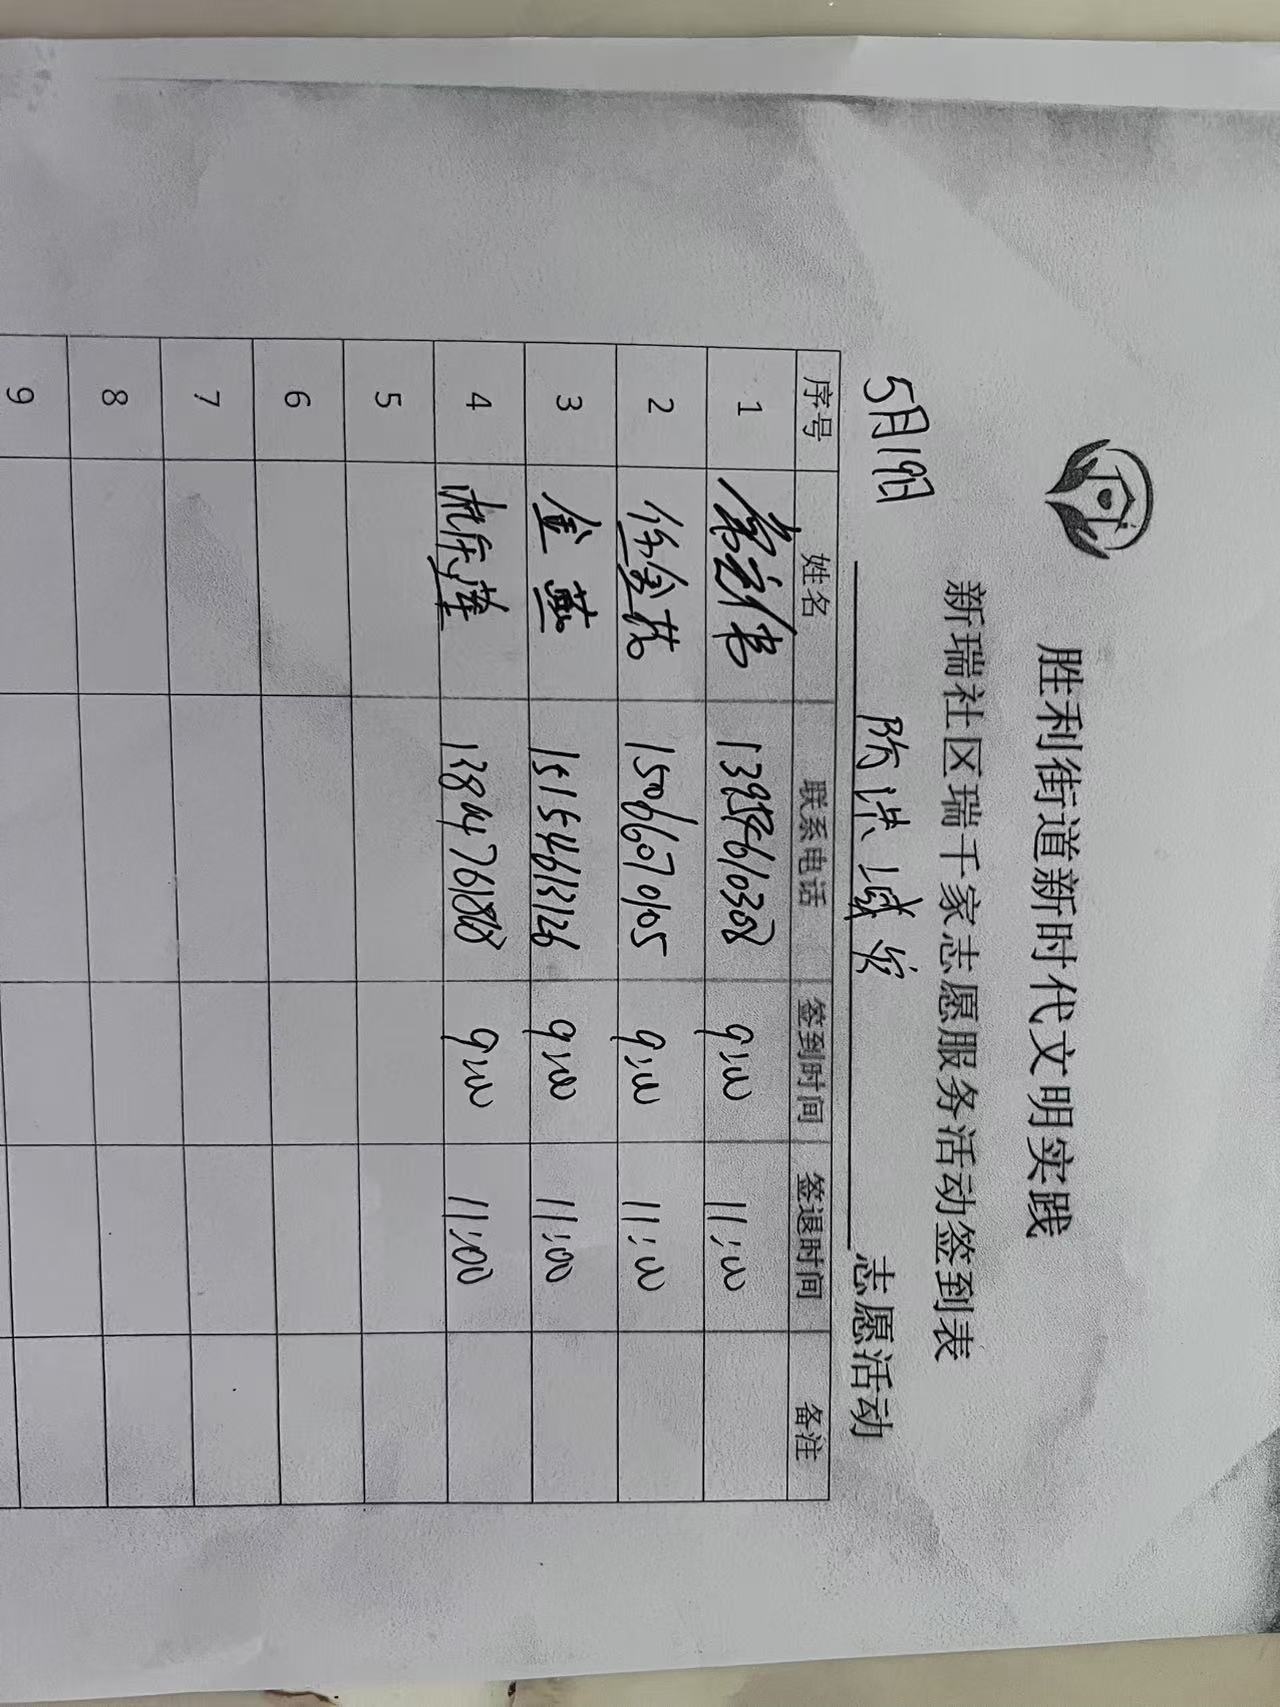 胜利街道新时代文明实践
新瑞社区瑞千家志愿服务活动签到表
5月19日 防洪减灾 志愿活动
序号 姓名 联系电话 签到时间 签退时间 备注
1 13954610308 9:00 11:00
2 徐金芬 15066070105 9:00 11:00
3 金燕 15154613126 9:00 11:00
4 9:00 11:00
5
6
7
8
9